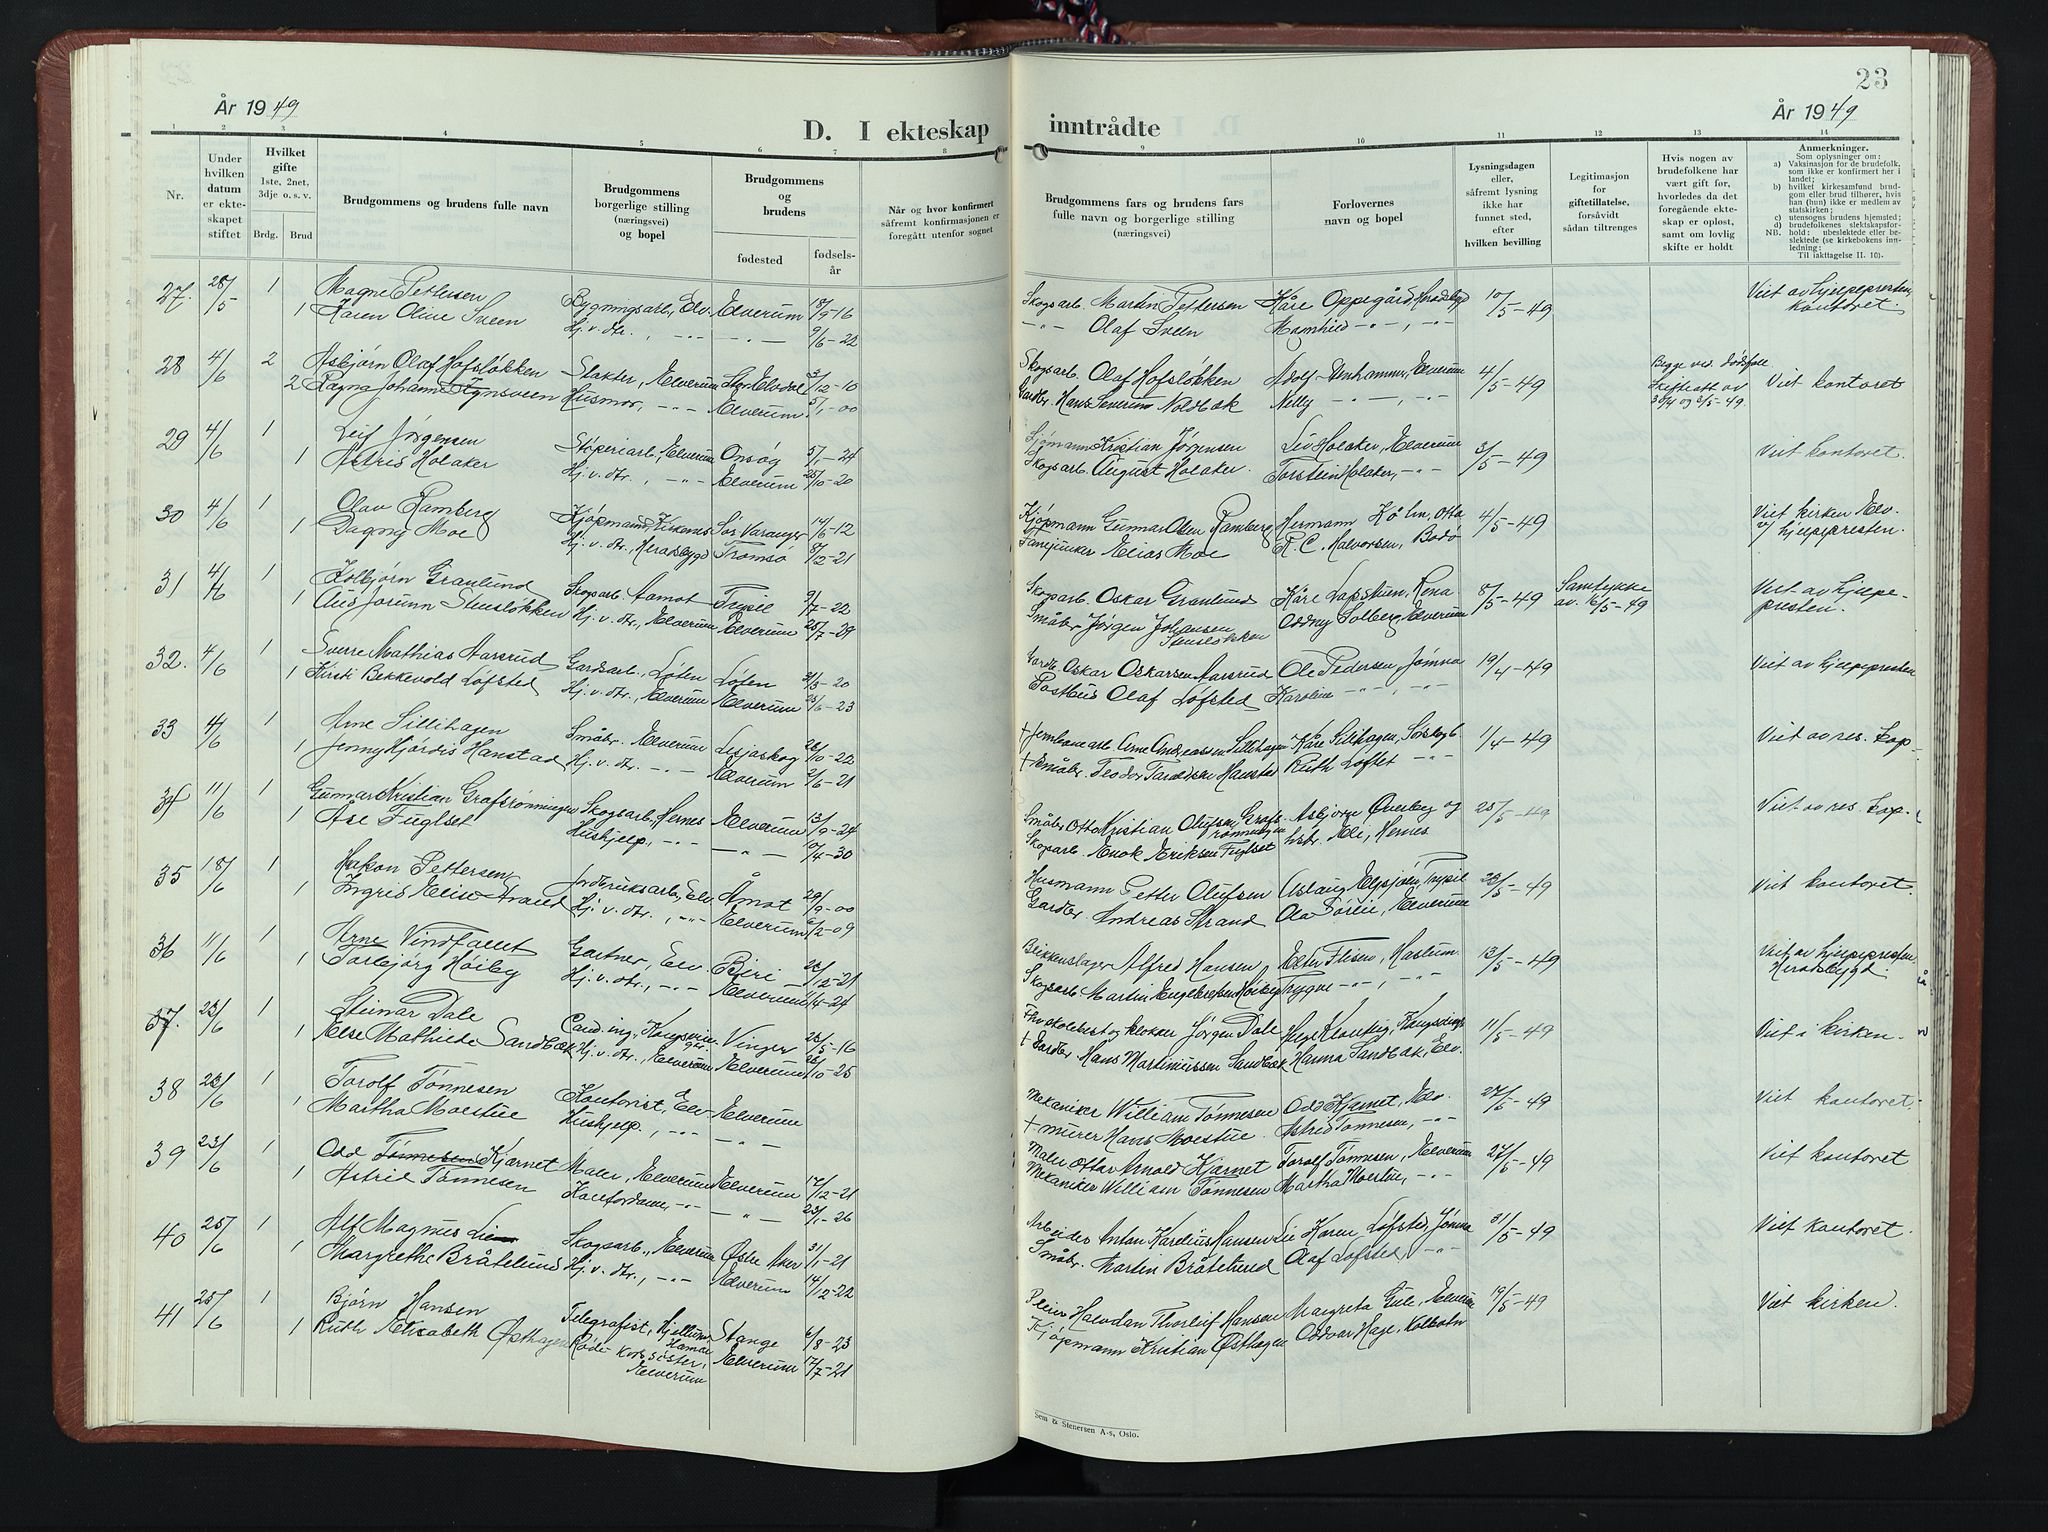 23
År 1949
År 1949
D. I ekteskap inntrådte
1 2 3 4 5 6 7 8 9 10 11 12 13 14
Nr.
Under hvilken datum er ekteskapet stiftet
Hvilket gifte
1ste, 2net, 3dje o. s. v.
Brdg. Brud
Brudgommens og brudens fulle navn
Brudgommens borgerlige stilling (næringsvei) og bopel
Brudgommens og brudens
fødested
fødselsår
Når og hvor konfirmert såfremt konfirmasjonen er foregått utenfor sognet
Brudgommens fars og brudens fars fulle navn og borgerlige stilling (næringsvei)
Forlovernes navn og bopel
Lysningsdagen eller, såfremt lysning ikke har funnet sted, efter hvilken bevilling
Legitimasjon for giftetillatelse, forsåvidt sådan tiltrenges
Hvis nogen av brudefolkene har vært gift før, hvorledes da det foregående ekteskap er opløst, samt om lovlig skifte er holdt
Anmerkninger.
Som oplysninger om:
a) Vaksinasjon for de brudefolk, som ikke er konfirmert her i landet;
b) hvilket kirkesamfund brudgom eller brud tilhører, hvis han (hun) ikke er medlem av statskirken;
c) utensogns brudens hjemsted;
d) brudefolkenes slektskapsforhold: ubeslektede eller beslektede (se kirkebokens innledning:
NB. Til iakttagelse II. 10).
27. 28/5 1 Magne Pettersen Bygningsarb., Elv. Elverum 18/9-16 Skogsarb. Martin Pettersen Kåre Oppegård, Heradsbygd 10/5-49 Viet av hjelpepresten, kontoret.
1 Karen Oline Sveen Hj.v. dtr., -"- -"- 9/6-22 -"- Olaf Sveen Magnhild -"-, -"-
28 4/6 2 Asbjørn Olaf Hofsløkken Slakter, Elverum Stor-Elvdal 3/12-10 Skogsarb. Olaf Hofsløkken Adolf Stenhammer, Elverum 4/5-49 Begge ved dødsfall Viet kontoret
2 Ragna Johanne Fynsveen Husmor, -"- Elverum 5/1-00 Gardbr. Hans Severin Noldbak Nelly -"-, -"- Skifteatt av 30/4 og 3/5-49.
29 4/6 1 Leif Jørgensen Støperiarb., Elverum Onsøy 5/7-24 Sjømann Kristian Jørgensen Liv Holaker, Elverum 3/5-49 Viet kontoret.
1 Astrid Holaker Hj.v. dtr., -"- Elverum 25/10-20 Skogsarb. August Holaker. Torstein Holaker, -"-
30 4/6 1 Olav Ramberg Kjøpmann, Kirkenes Sør-Varanger 14/6-12 Kjøpmann Gunnar Olsen Ramberg Hermann Holm, Otta 4/5-49 Viet kirken Elv. v/ hjelpepresten.
1 Dagny Moe Hj.v. dtr., Heradsbygd Tromsø 8/12-21 Fanejunker Elias Moe R. C. Halvorsen, Bodø
31 4/6 1 Kolbjørn Granlund Skogsarb. Åamot Trysil 9/7-22 Skogsarb. Oskar Granlund Kåre Lapstun, Rena 8/5-49 Samtykke av. 16/5-49 Viet av hjelpepresten.
1 Aud Jorunn Stensløkken Hj.v. dtr., Elverum Elverum 25/7-29 Småbr. Jørgen Johansen Stensløkken Oddny Solberg, Elverum
32. 4/6 1 Sverre Mathias Aarsrud Gardsarb., Løten Løten 31/5-20 Gardb. Oskar Oskarsen Aarsrud Ole Pedersen, Jømna 19/4-49 Viet av hjelpepresten
1 Kirsti Bekkevold Løfsted Hj.v. dtr., Elverum Elverum 25/6-23 Postbud Olaf Løfsted Karoline -"-, -"-
33 4/6 1 Arne Sillihagen Småbr. Elverum Lesjaskog 26/10-22 + Jernbanearb. Arne Andreassen Sillihagen Kåre Sillihagen, Sørskogb. 1/4-49 Viet av res. Kap-
1 Jenny Hjørdis Hanstad Hj.v. dtr. -"- Elverum 2/6-21 + Småbr. Teodor Taraldsen Hanstad Ruth Løftet -"-
34 11/6 1 Gunnar Kristian Grafsrønningen Skogsarb., Hernes Elverum 13/9-24 Småbr. Otto Kristian Olufsen Grafsrønningen Asbjørn Øverby og 25/5-49 Viet av res. Kap.
1 Åse Fuglset Hushjelp, -"- -"- 10/4-30 Skogsarb. Enok Eriksen Fuglset Hernes
35 18/6 1 Håkon Pettersen Jordbruksarb., Elv. Åmot 29/9-00 Husmann Petter Olufsen Aslaug Elgsjøen, Trysil 23/5-49 Viet kontoret.
1 Ingrid Elise Strand Hj.v. dtr., -"- Elverum 6/2-09 Gardbr. Andreas Strand Ola Søreie, Elverum
36 11/6 1 Arne Vindfallet Gartner, Elv. Biri 23/12-21 Blikkenslager Alfred Hansen Peter Flisen, Haslum 13/5-49 Viet av hjelpepresten Heradsbygd.
1 Torbjørg Høiby Hj.v. dtr., -"- Elverum 11/4-24 Skogsarb. Martin Engebretsen Høiby Trygve -"-, -"-
37. 23/6 1 Steinar Dale Cand. ing., Kongsvinger Vinger 25/5-16 Fhv. skolebest. og klokker Jørgen Dale Helge Klanrig, Kongsvinger 11/5-49 Viet i kirken-
1 Else Mathilde Sandbæk Hj.v. dtr., Elverum Elverum 26/10-25 + Gardbr. Hans Martinussen Sandbæk Hanna Sandbæk, Elv.
38 23/6 1 Torolf Tønnesen Kontorist, Elv. Elverum Mekaniker William Tønnesen Odd Kjærnet, Elv. 27/5-49 Viet kontoret.
1 Martha Moestue Hushjelp., -"- -"- + murer Hans Moestue. Astrid Tønnesen, -"-
39 23/6 1 Odd Tønnesen Kjærnet Maler, Elverum Elverum 17/12-21 Maler Ottar Arnold Kjærnet Torolf Tønnesen, Elverum 27/5-49 Viet kontoret
1 Astrid Tønnesen Kontordame, -"- -"- 23/1-26 Mekaniker William Tønnesen Martha Moestue, -"-
40 25/6 1 Alf Magnus Lie Skogsarb., Elverum Østre Aker 31/1-21 Arbeider Anton Karelius Hansen Lie Karen Løfsted, Jømna 31/5-49 Viet kontoret.
1 Margrethe Bråtelund Hj.v. dtr., -"- Elverum 14/12-22 Småbr. Martin Bråtelund Olaf Løfsted, -"-
41 25/6 1 Bjørn Hansen Telegrafist, Kjellund Hamar Stange 6/8-23 Halvdan Thorleif Hansen Margreta Gule, Elverum 19/5-49 Viet kirken.
1 Ruth Elisabeth Østhagen Røde Korssøster, Elverum Elverum 17/7-21 Kjøpmann Kristian Østhagen Oddvar Hage, Kolbotn
Sem & Stenersen A-s, Oslo.